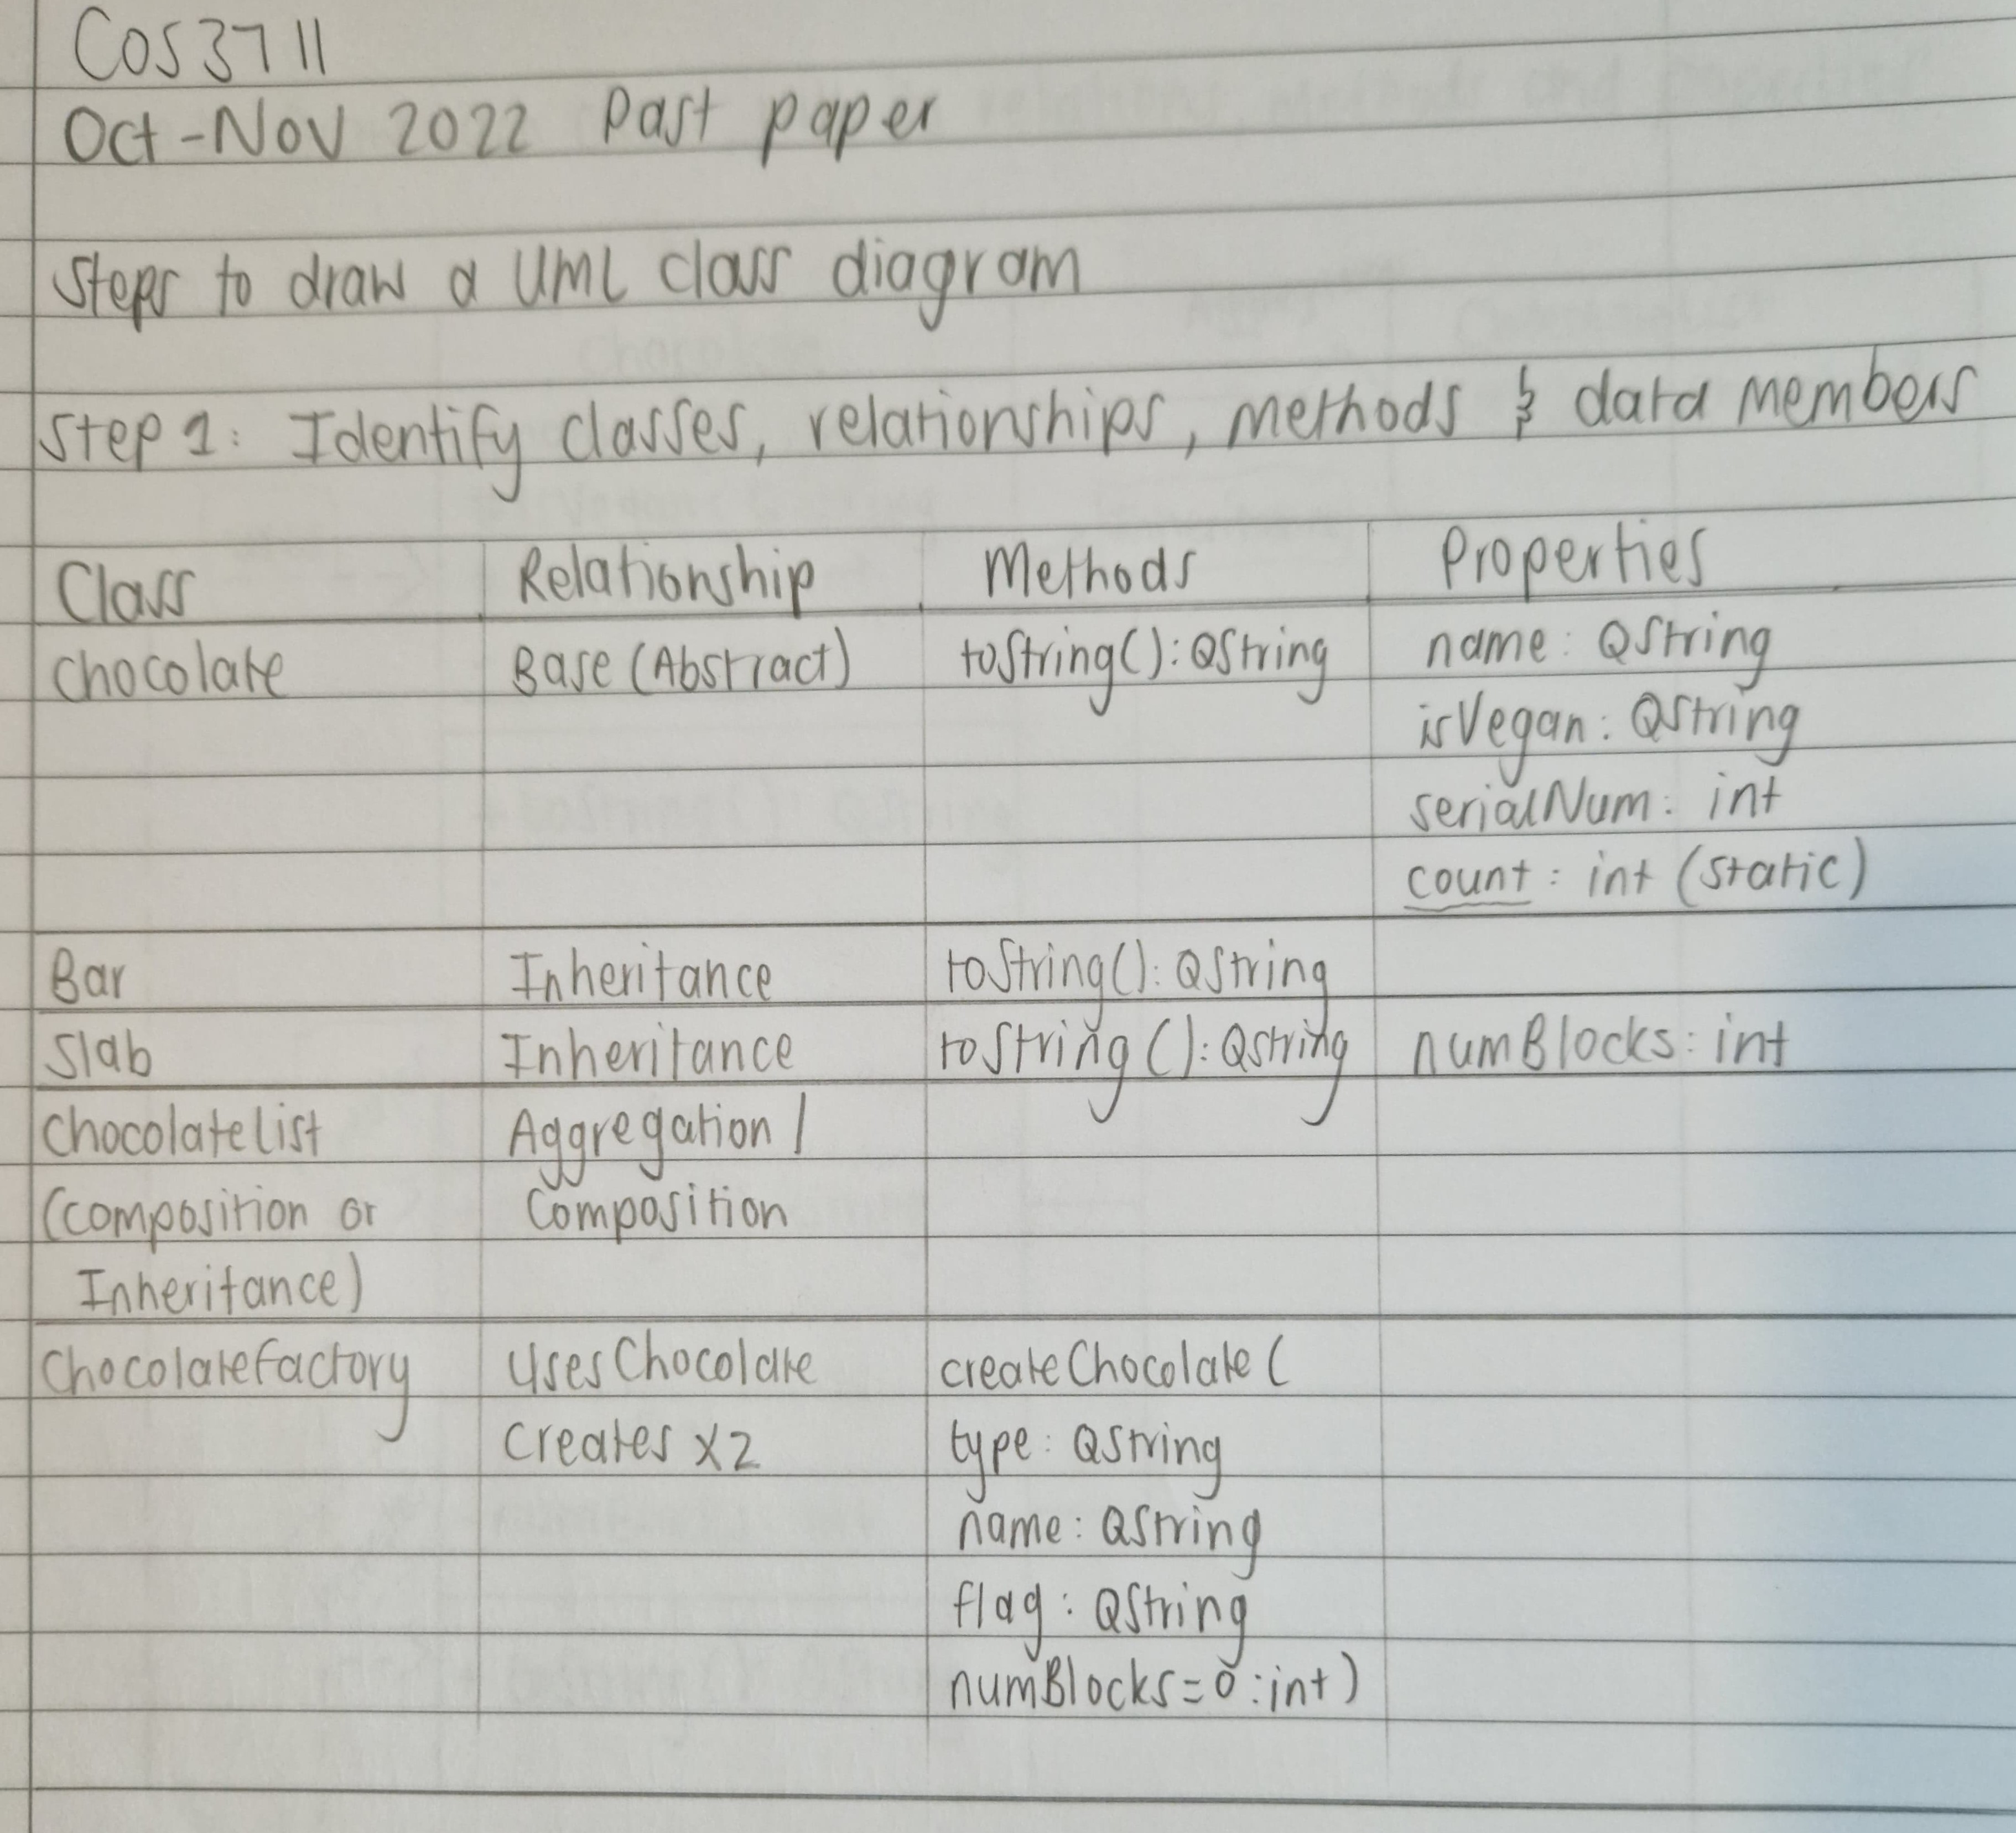 COS3711
Oct-Nov 2022 Past paper
Steps to draw a UML class diagram
Step 1: Identify classes, relationships, methods & data members
Class Relationship Methods Properties
Chocolate Base (Abstract) toString(): QString name: QString
isVegan: QString
serialNum: int
count: int (static)
Bar Inheritance toString(): QString
Slab Inheritance toString(): QString numBlocks: int
Chocolatelist Aggregation /
(composition or Composition
Inheritance)
ChocolateFactory Uses Chocolate createChocolate(
Creates x2 type: QString
name: QString
flag: QString
numBlocks=0:int)